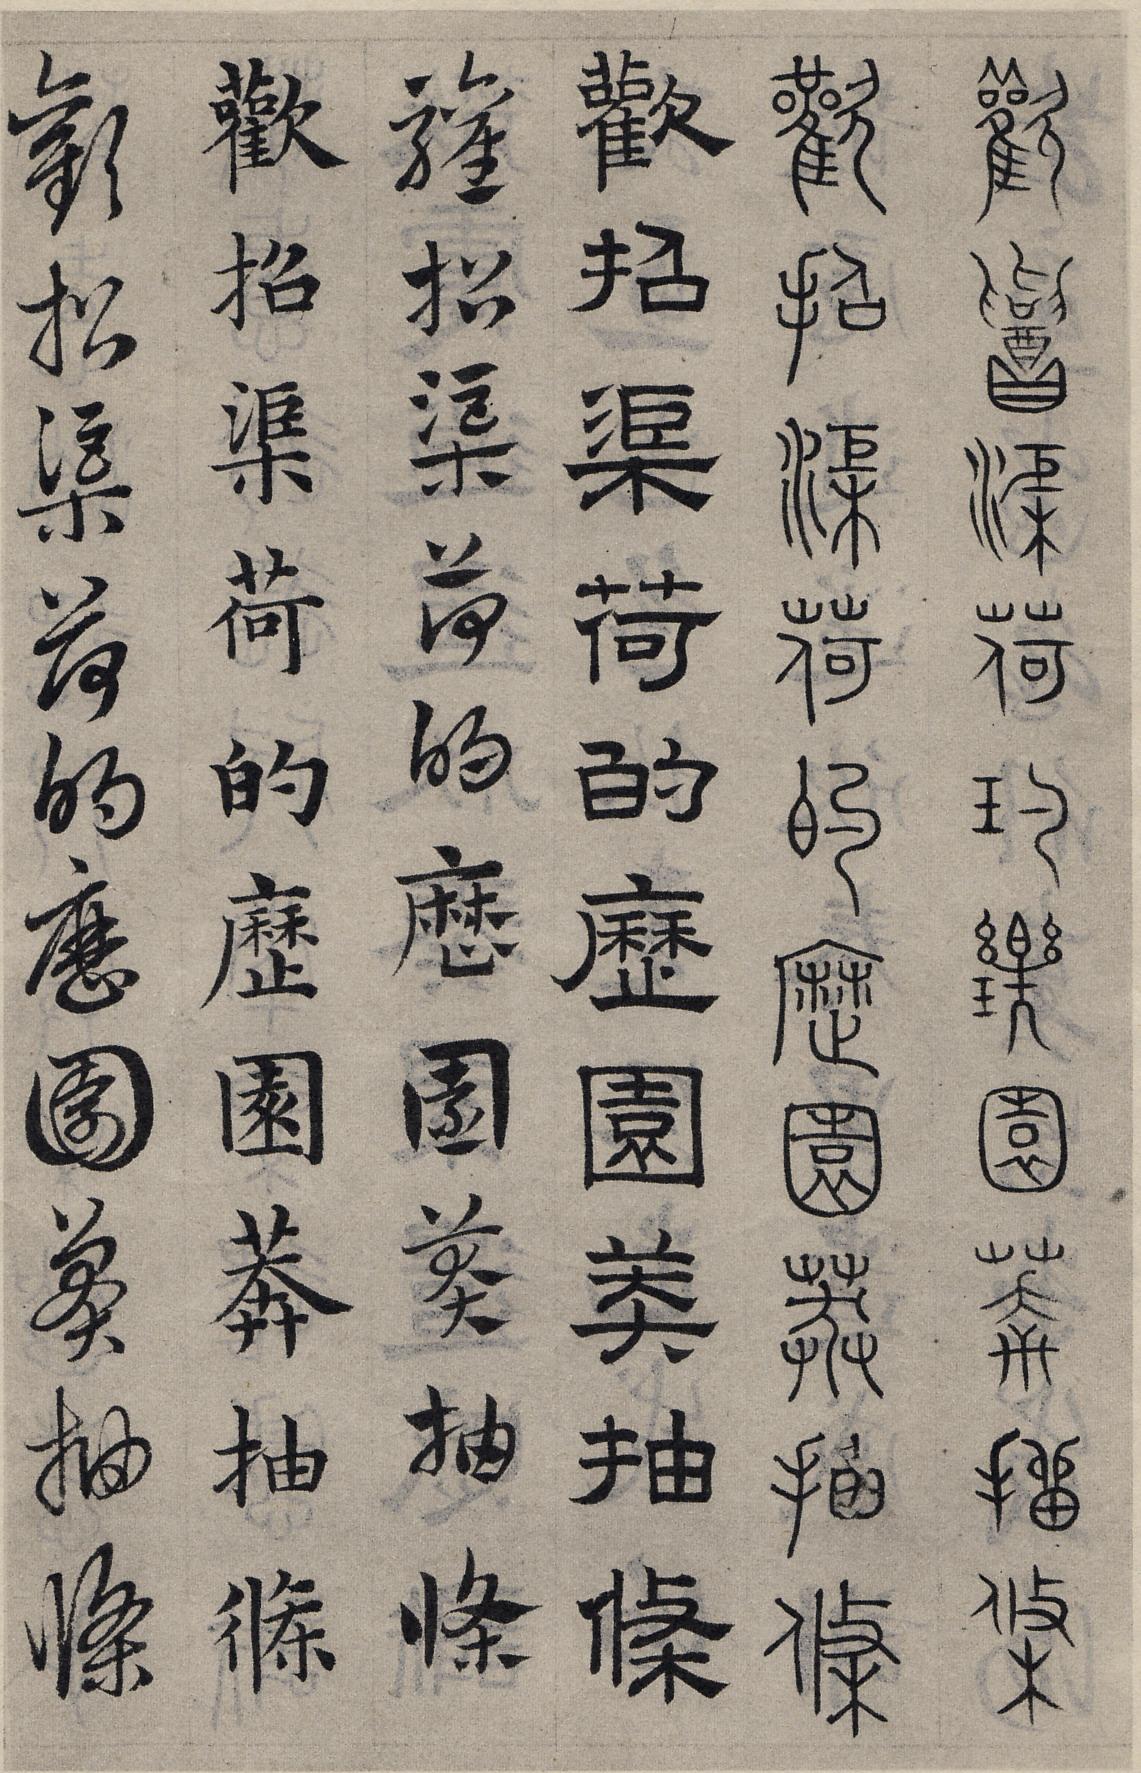 歡招渠荷的歷園莽抽條
歡招渠荷的歷園莽抽條
歡招渠荷的歷園莽抽條
歡招渠荷的歷園莽抽條
歡招渠荷的歷園莽抽條
歡招渠荷的歷園莽抽條